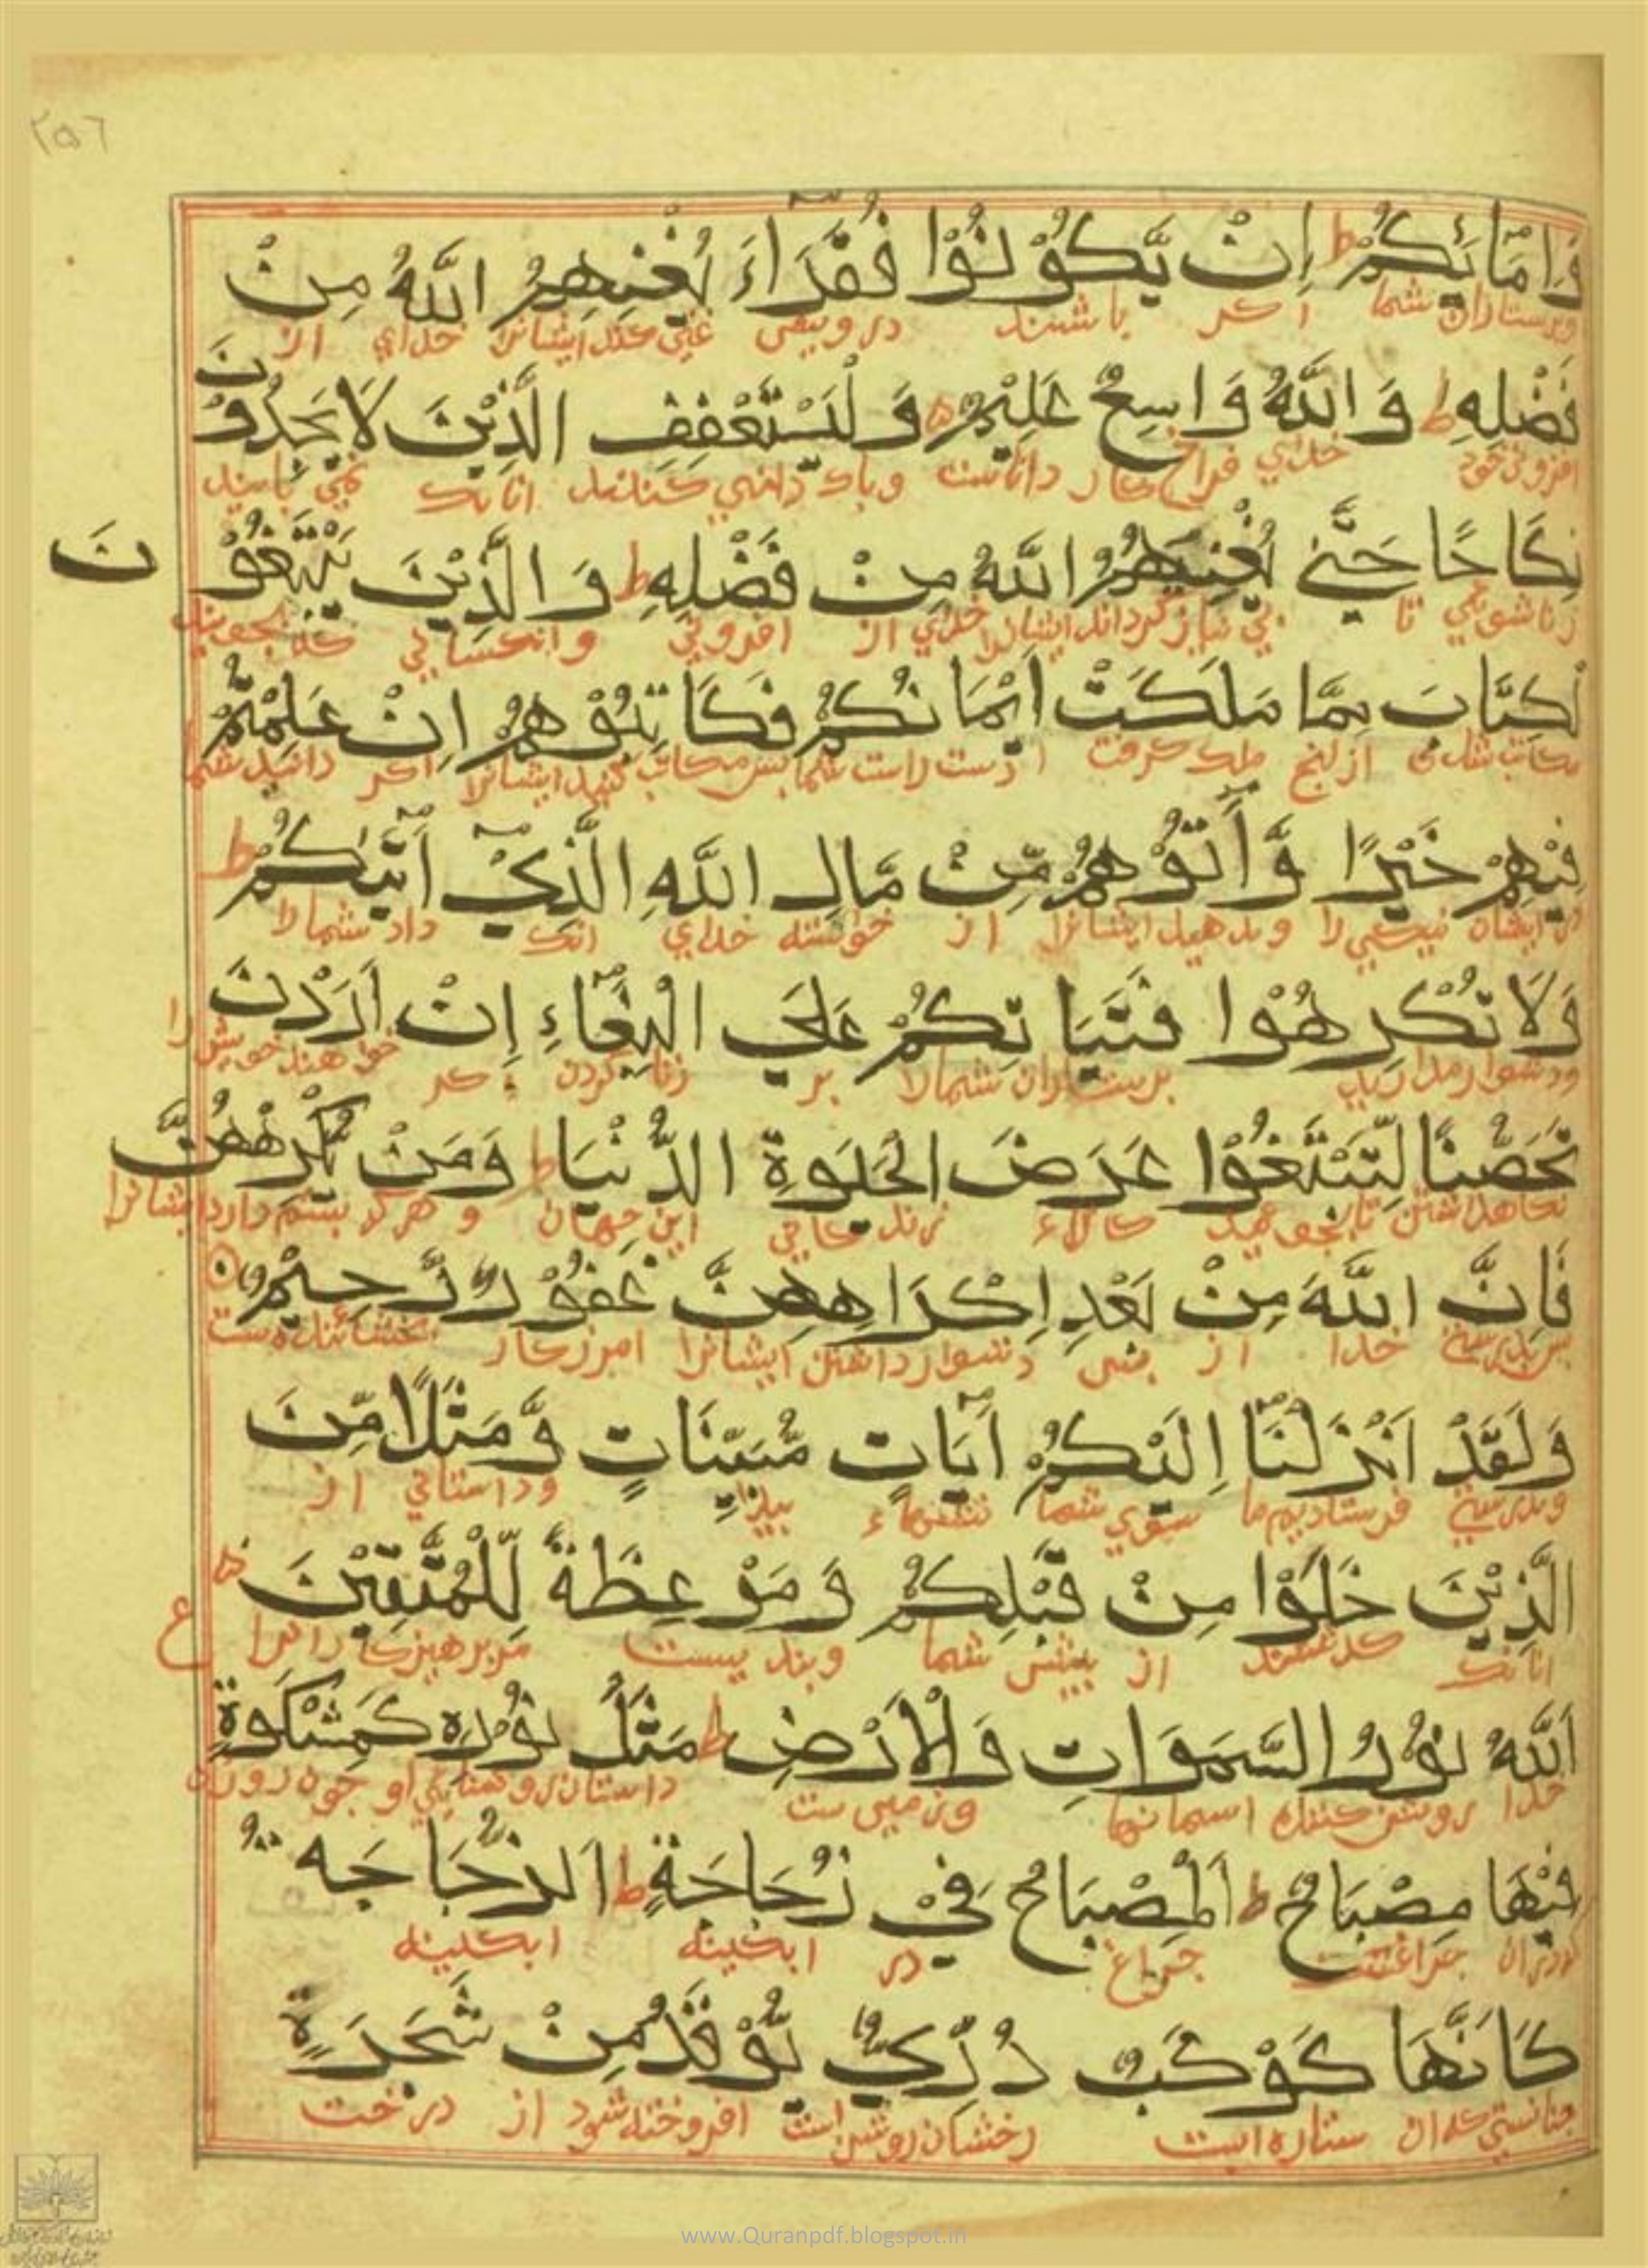 ٢٥٦
وَاِمَائِكُمْ ط اِنْ يَّكُوْنُوْا فُقَرَاءَ يُغْنِهِمُ اللّٰهُ مِنْ
وپرستاران شما اكر باشند درويش غني كند ايشانرا خداي از
فَضْلِهٖ ط وَاللّٰهُ وَاسِعٌ عَلِيْمٌ ۵ وَلْيَسْتَعْفِفِ الَّذِيْنَ لَا يَجِدُوْنَ
افزوني خود خداي فراخ كار داناست وپاك دامني كنند انانك نمي يابند
نِكَاحًا حَتّٰي يُغْنِيَهُمُ اللّٰهُ مِنْ فَضْلِهٖ ط وَالَّذِيْنَ يَبْتَغُوْنَ
زناشويي تا بي نياز كرداند ايشانرا خداي از افزوني وانكساني كه بجويند
لْكِتَابَ مِمَّا مَلَكَتْ اَيْمَانُكُمْ فَكَاتِبُوْهُمْ اِنْ عَلِمْتُمْ
از انج ملك كرفت دست راست شما پس مكاتب كنيد ايشانرا اكر دانيد شما
فِيْهِمْ خَيْرًا وَّاٰتُوْهُمْ مِّنْ مَّالِ اللّٰهِ الَّذِيْ اٰتٰيكُمْ ط
در ايشان نيكي را وبدهيد ايشانرا از خواسته خداي انك داد شمارا
وَلَا تُكْرِهُوْا فَتَيَاتِكُمْ عَلَي الْبِغَاءِ اِنْ اَرَدْنَ
ودشوار مداريد پرستاران شمارا بر زنا كردن اكر خواهند خويش را
تَحَصُّنًا لِّتَبْتَغُوْا عَرَضَ الْحَيٰوةِ الدُّنْيَا ط وَمَنْ يُّكْرِهْهُنَّ
نكاهداشتن تا بجوييد كالاء زندكاني اين جهان و هركه بستم دارد ايشانرا
فَاِنَّ اللّٰهَ مِنْ بَعْدِ اِكْرَاهِهِنَّ غَفُوْرٌ رَّحِيْمٌ ۵
پس بدرستي خدا از پس دشوار داشتن ايشانرا امرزكار بخشاينده ست
وَلَقَدْ اَنْزَلْنَا اِلَيْكُمْ اٰيَاتٍ مُّبَيِّنَاتٍ وَّمَثَلًا مِّنَ
وبدرستي فرستاديم ما سوي شما نشنهاء پيدا وداستاني از
الَّذِيْنَ خَلَوْا مِنْ قَبْلِكُمْ وَمَوْعِظَةً لِّلْمُتَّقِيْنَ ۵ ع
انانك كذشتند از پيش شما وپنديست مر پرهيزكارانرا
اَللّٰهُ نُوْرُ السَّمٰوَاتِ وَالْاَرْضِ ط مَثَلُ نُوْرِهٖ كَمِشْكٰوةٍ
خدا روشن كننده اسمانها وزمين ست داستان روشنايي او چون روزن
فِيْهَا مِصْبَاحٌ ط اَلْمِصْبَاحُ فِيْ زُجَاجَةٍ ط اَلزُّجَاجَةُ
كه دران چراغست چراغ در ابكينه ابكينه
كَاَنَّهَا كَوْكَبٌ دُرِّيٌّ يُّوْقَدُ مِنْ شَجَرَةٍ
چنانستي كه ان ستاره است رخشان روشن است افروخته شود از درخت
www.Quranpdf.blogspot.in